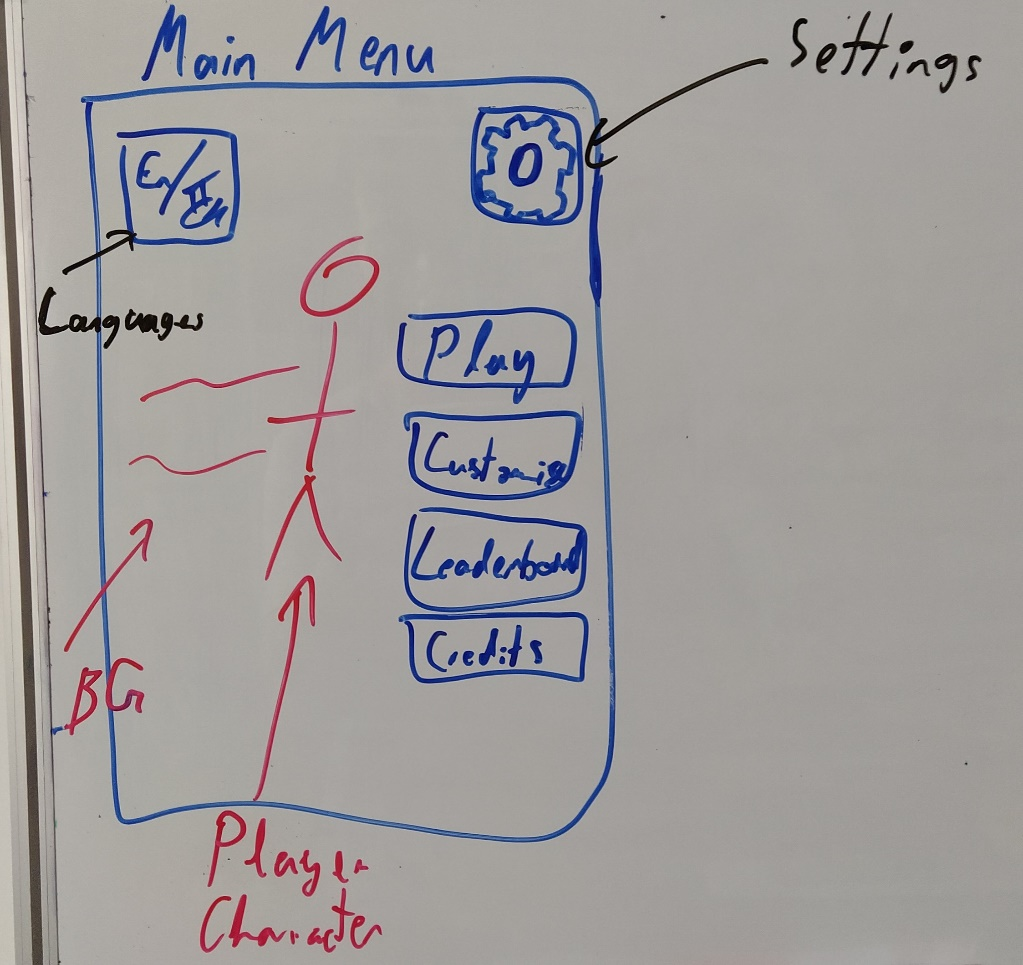 Main Menu
Settings
En/
Languages
Play
Customise
Leaderboard
Credits
BG
Player
Character